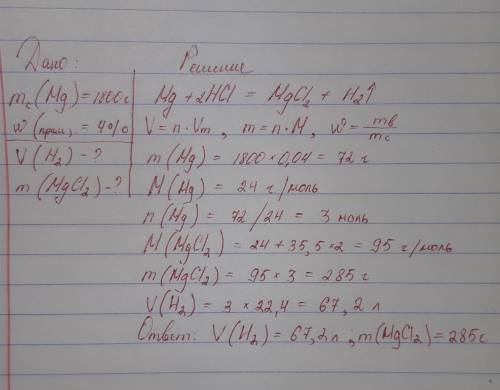 Дано:
Решение
mc(Mg) = 1800г
w(прим.) = 4%
V(H₂) - ?
m(MgCl₂) - ?
Mg + 2HCl = MgCl₂ + H₂↑
V = n · Vm , m = n · M , w = mв/mс
m(Mg) = 1800 × 0,04 = 72 г
M(Mg) = 24 г/моль
n(Mg) = 72/24 = 3 моль
M(MgCl₂) = 24 + 35,5 × 2 = 95 г/моль
m(MgCl₂) = 95 × 3 = 285 г
V(H₂) = 3 × 22,4 = 67,2 л
Ответ: V(H₂) = 67,2л ; m(MgCl₂) = 285г